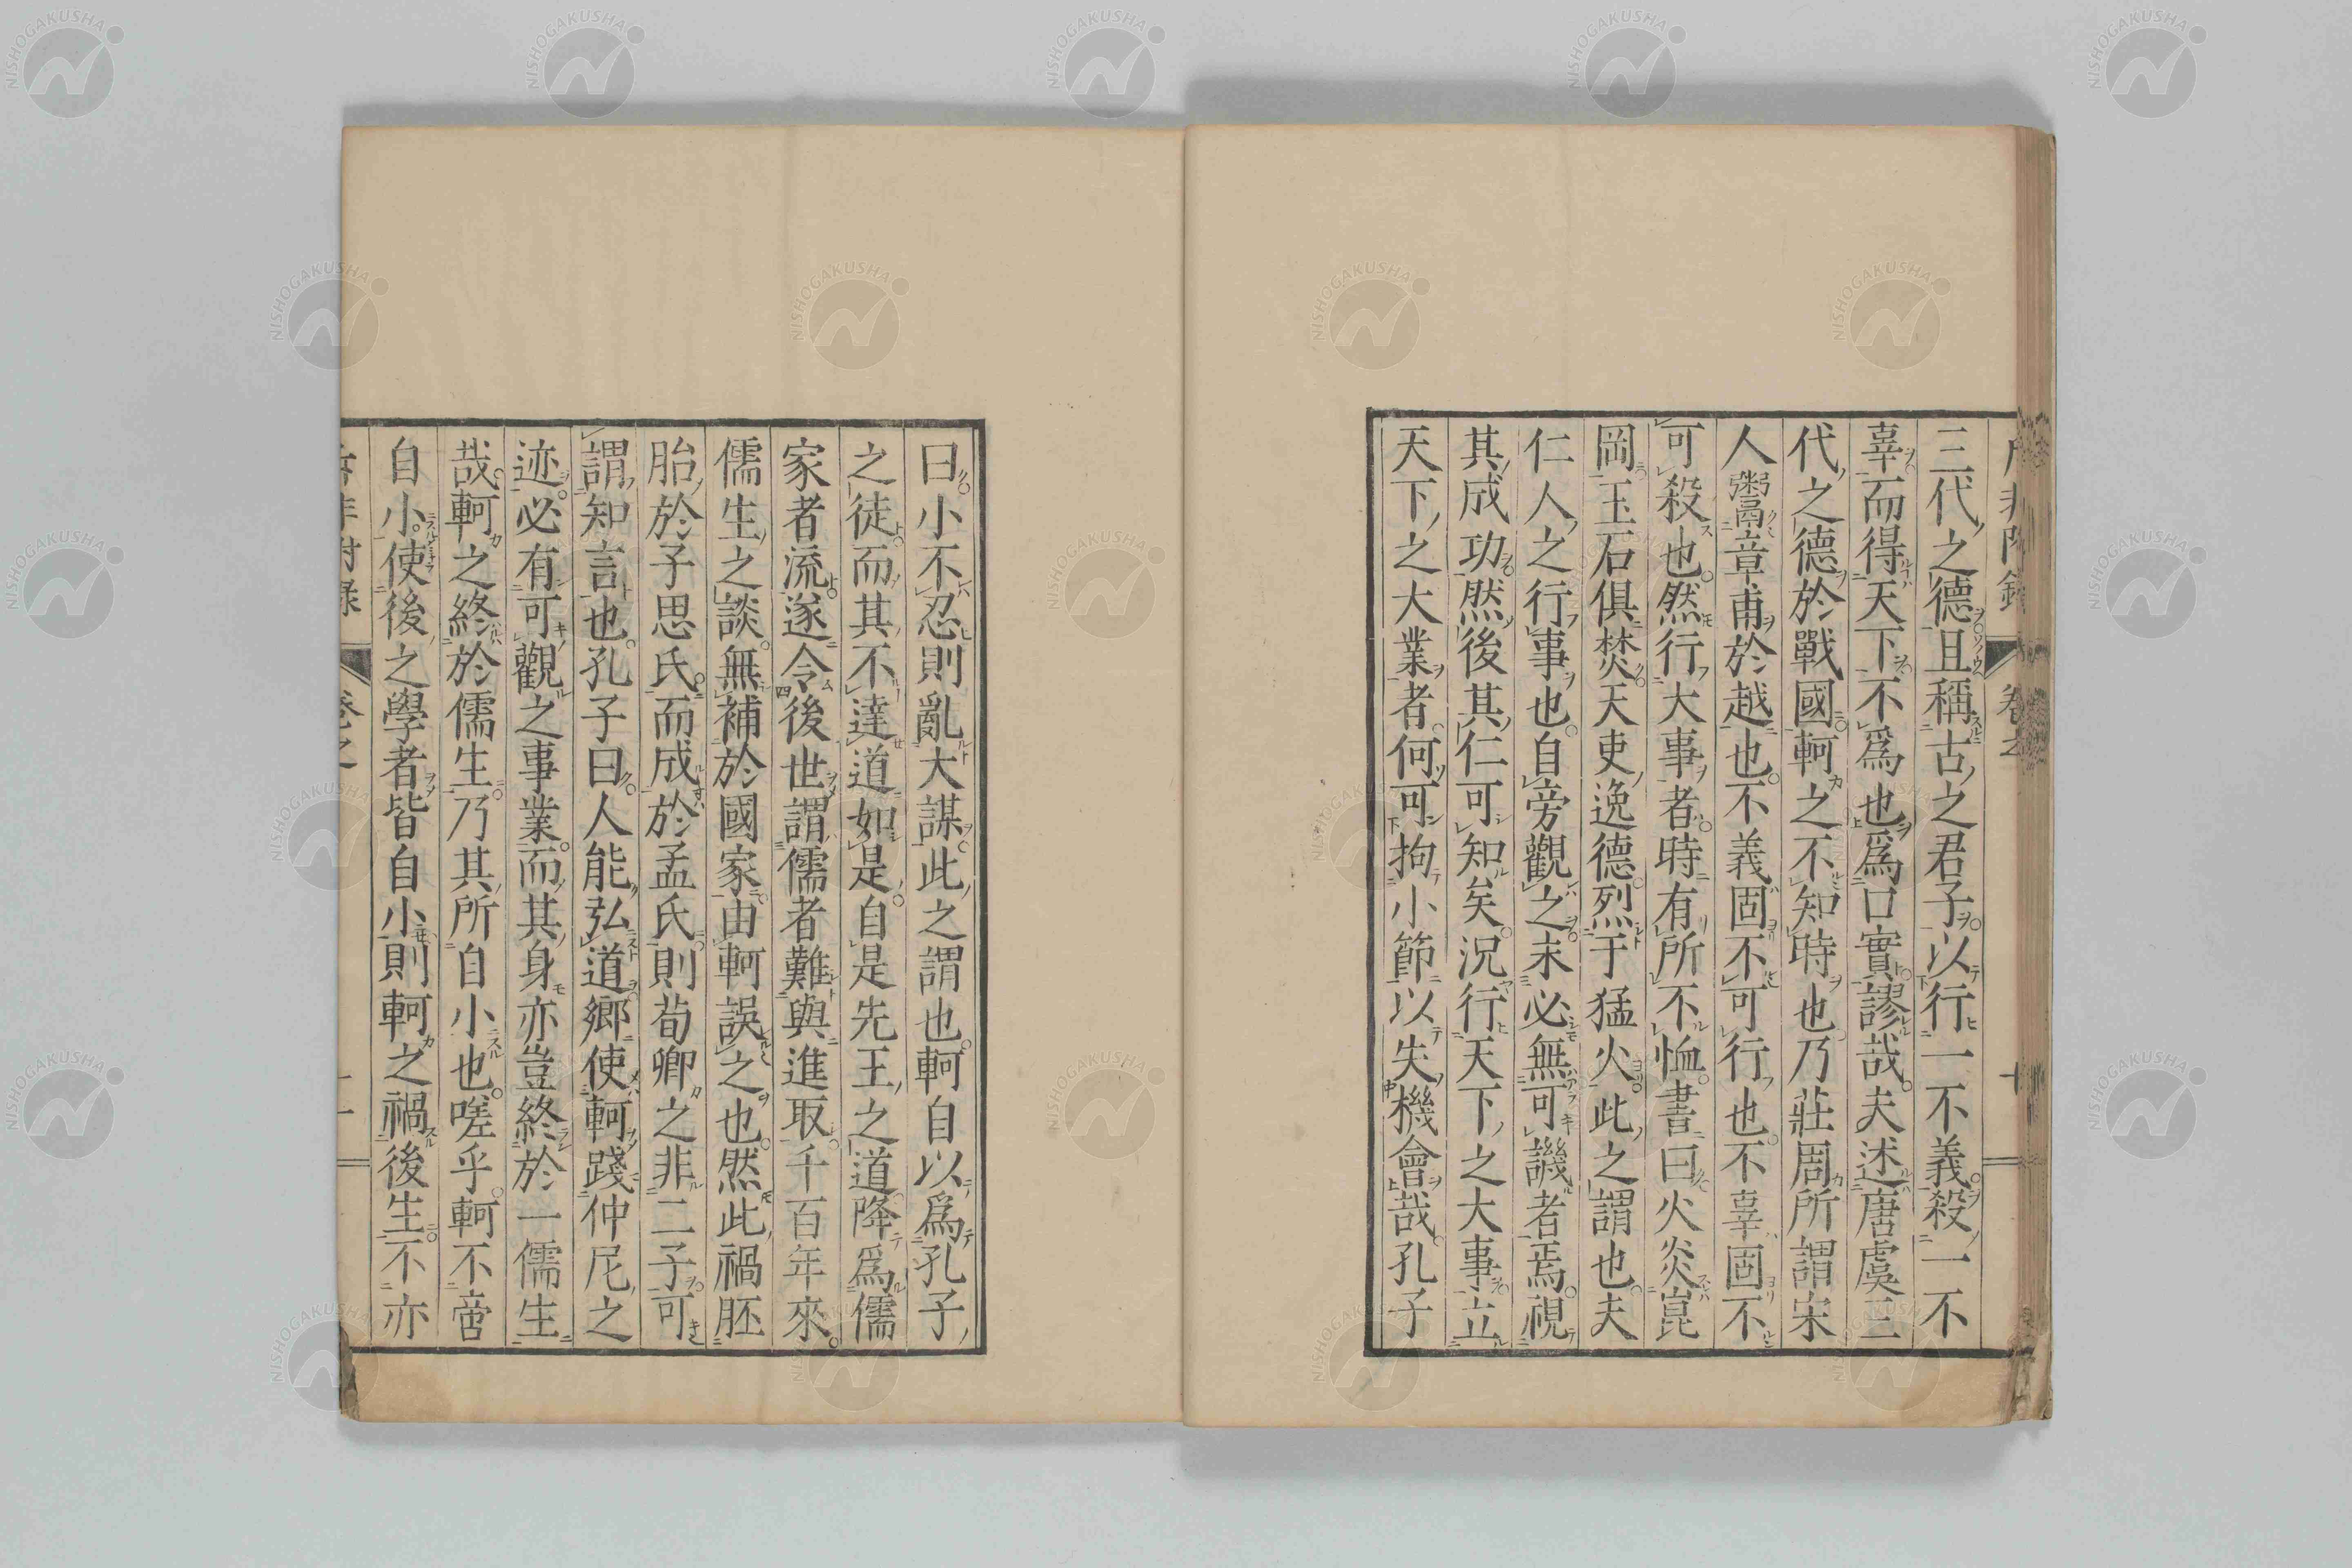 三代之德且稱古之君子以行一不義殺一不
辜而得天下不爲也爲口實謬哉夫述唐虞三
代之德於戰國軻之不知時也乃莊周所謂宋
人鬻章甫於越也不義固不可行也不辜固不
可殺也然行大事者時有所不恤書曰火炎崑
岡玉石俱焚天吏逸德烈于猛火此之謂也夫
仁人之行事也自旁觀之未必無可譏者焉視
其成功然後其仁可知矣況行天下之大事立
天下之大業者何可拘小節以失機會哉孔子
曰小不忍則亂大謀此之謂也軻自以爲孔子
之徒而其不達道如是自是先王之道降爲儒
家者流遂令後世謂儒者難與進取千百年來
儒生之談無補於國家由軻誤之也然此禍胚
胎於子思氏而成於孟氏則荀卿之非二子可
謂知言也孔子曰人能弘道鄉使軻踐仲尼之
迹必有可觀之事業而其身亦豈終於一儒生
哉軻之終於儒生乃其所自小也嗟乎軻不啻
自小使後之學者皆自小則軻之禍後生不亦
NISHOGAKUSHA